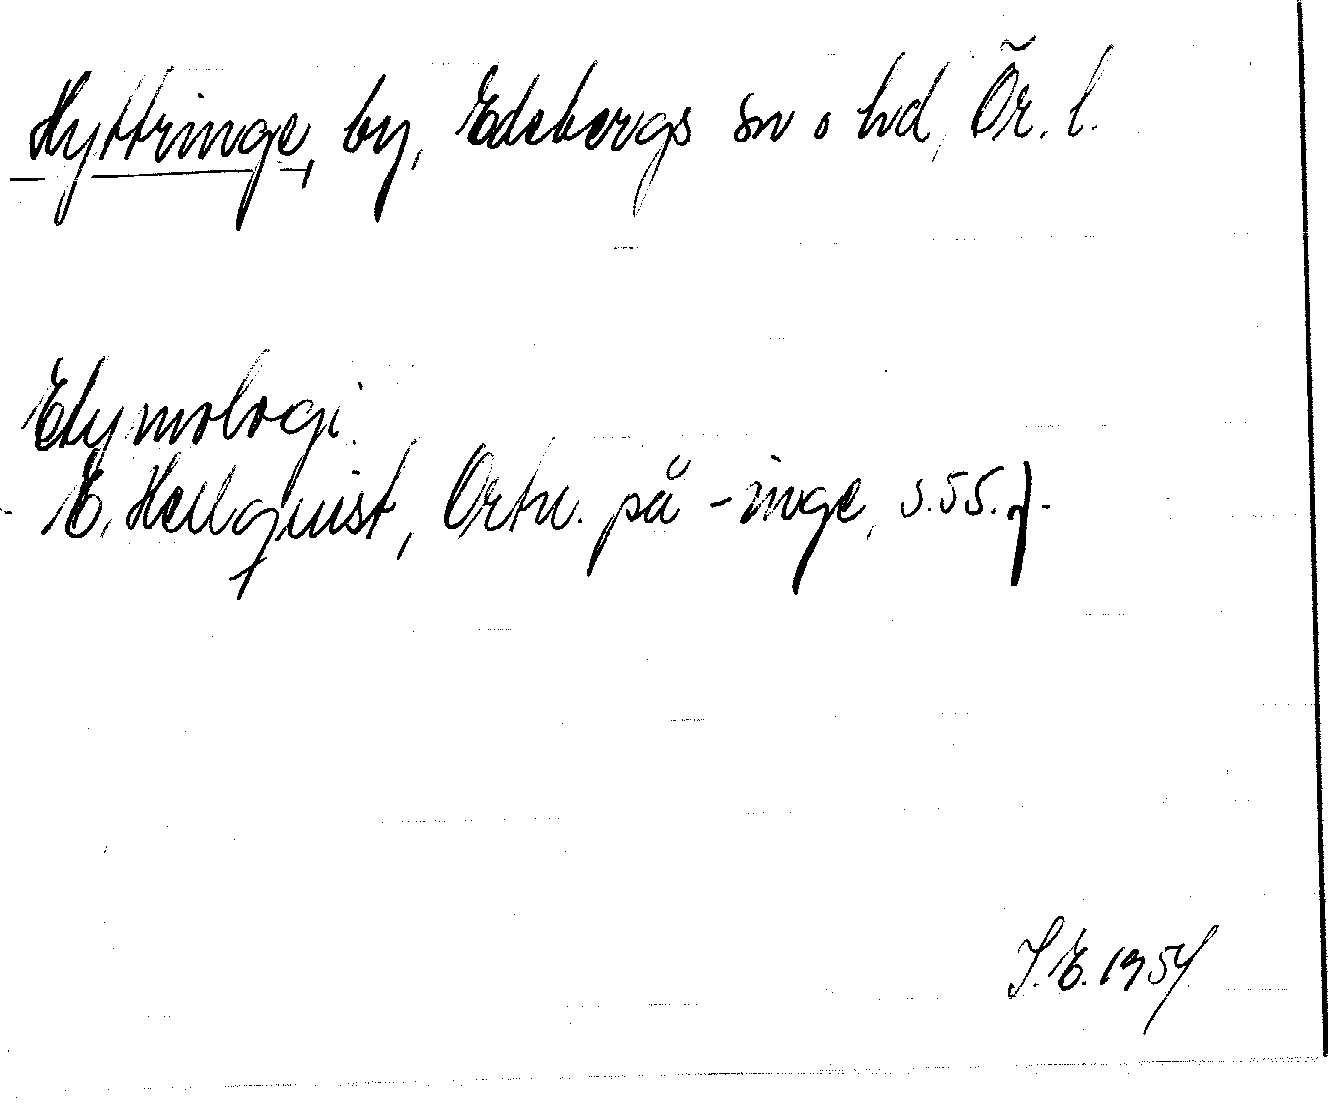 Hyttringe, by, Edsbergs sn o hd, Ör. l.
Etymologi.
E. Hellquist, Ortn. på -inge, s. 55. f.
I. E. 1954